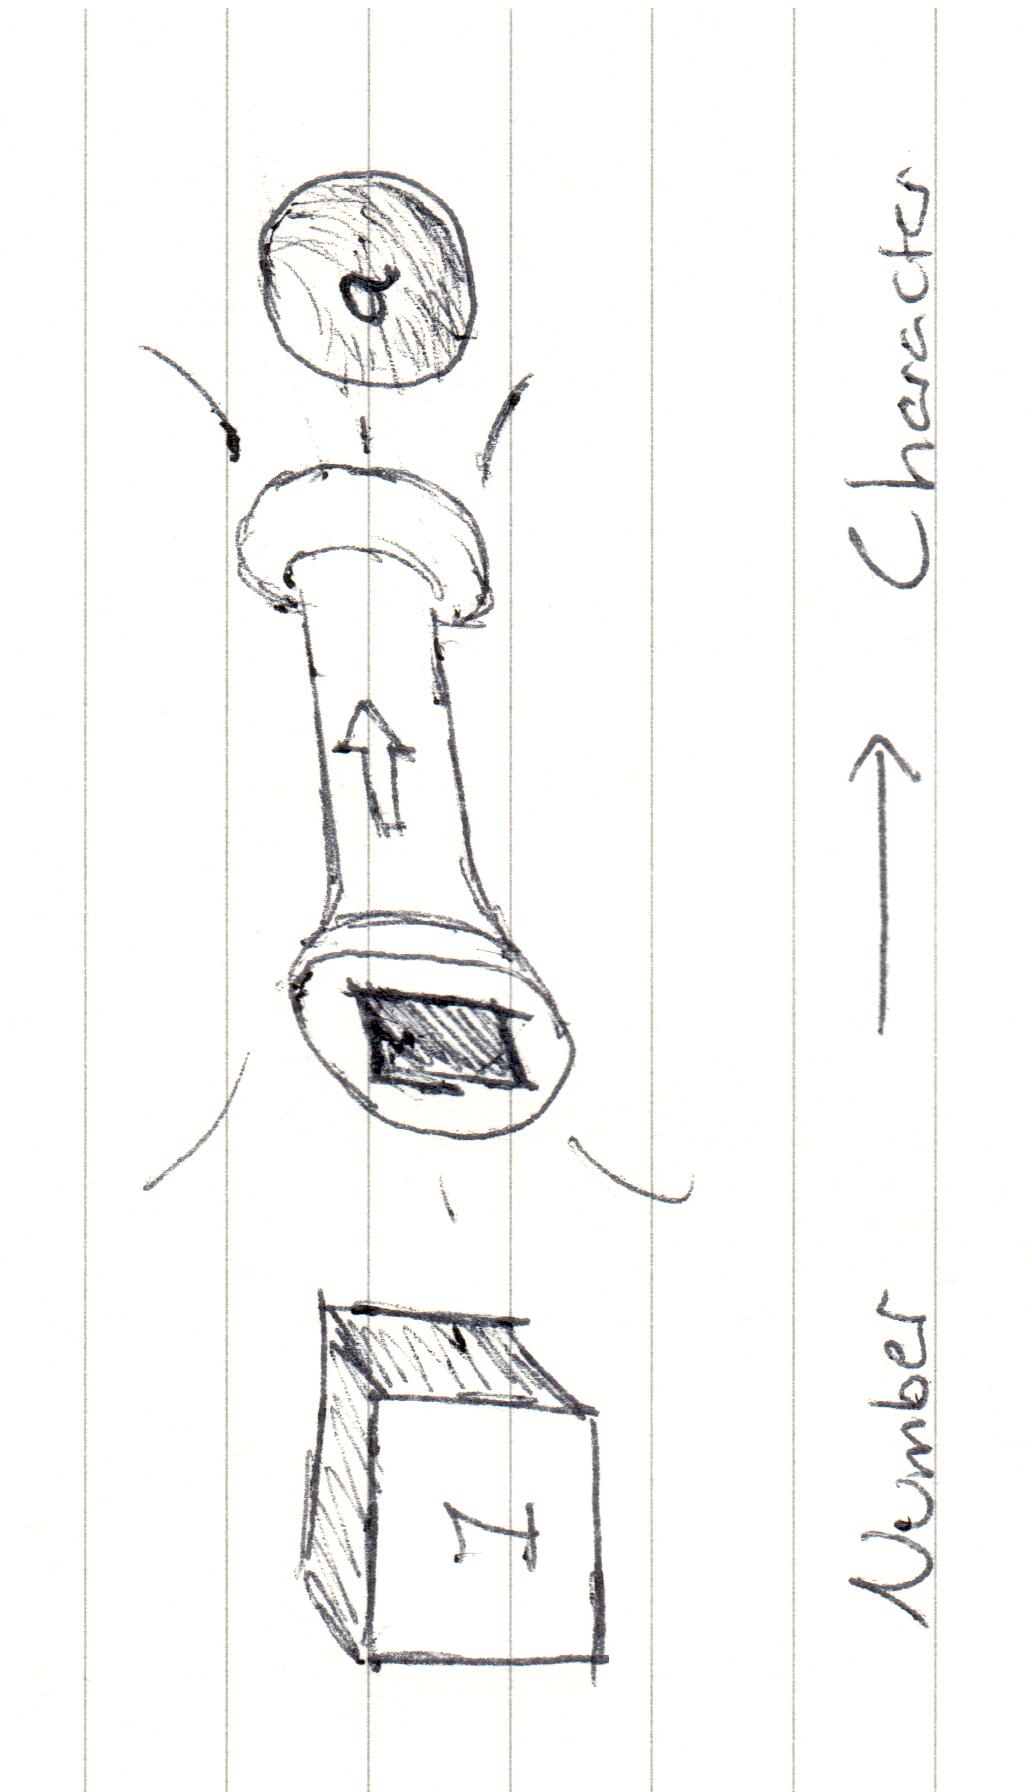 1 a
Number → Character